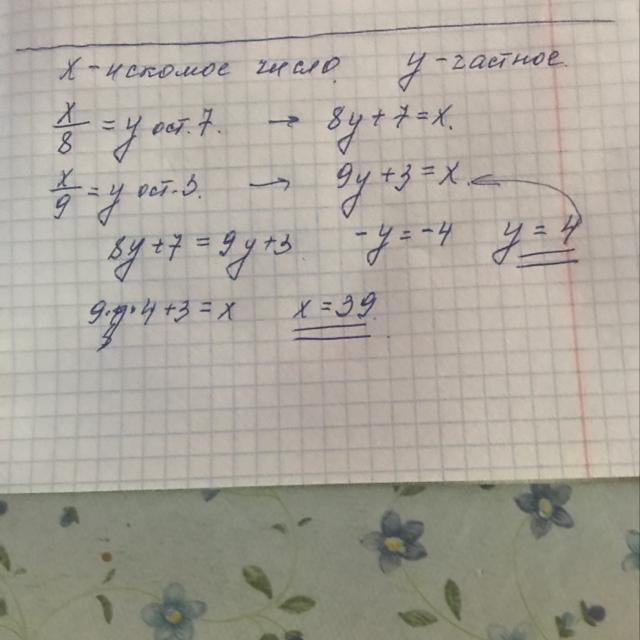 x - искомое число. y - частное.
x/8 = y ост. 7. → 8y + 7 = x.
x/9 = y ост. 3. → 9y + 3 = x.
8y + 7 = 9y + 3. -y = -4 y = 4
9·4 + 3 = x x = 39